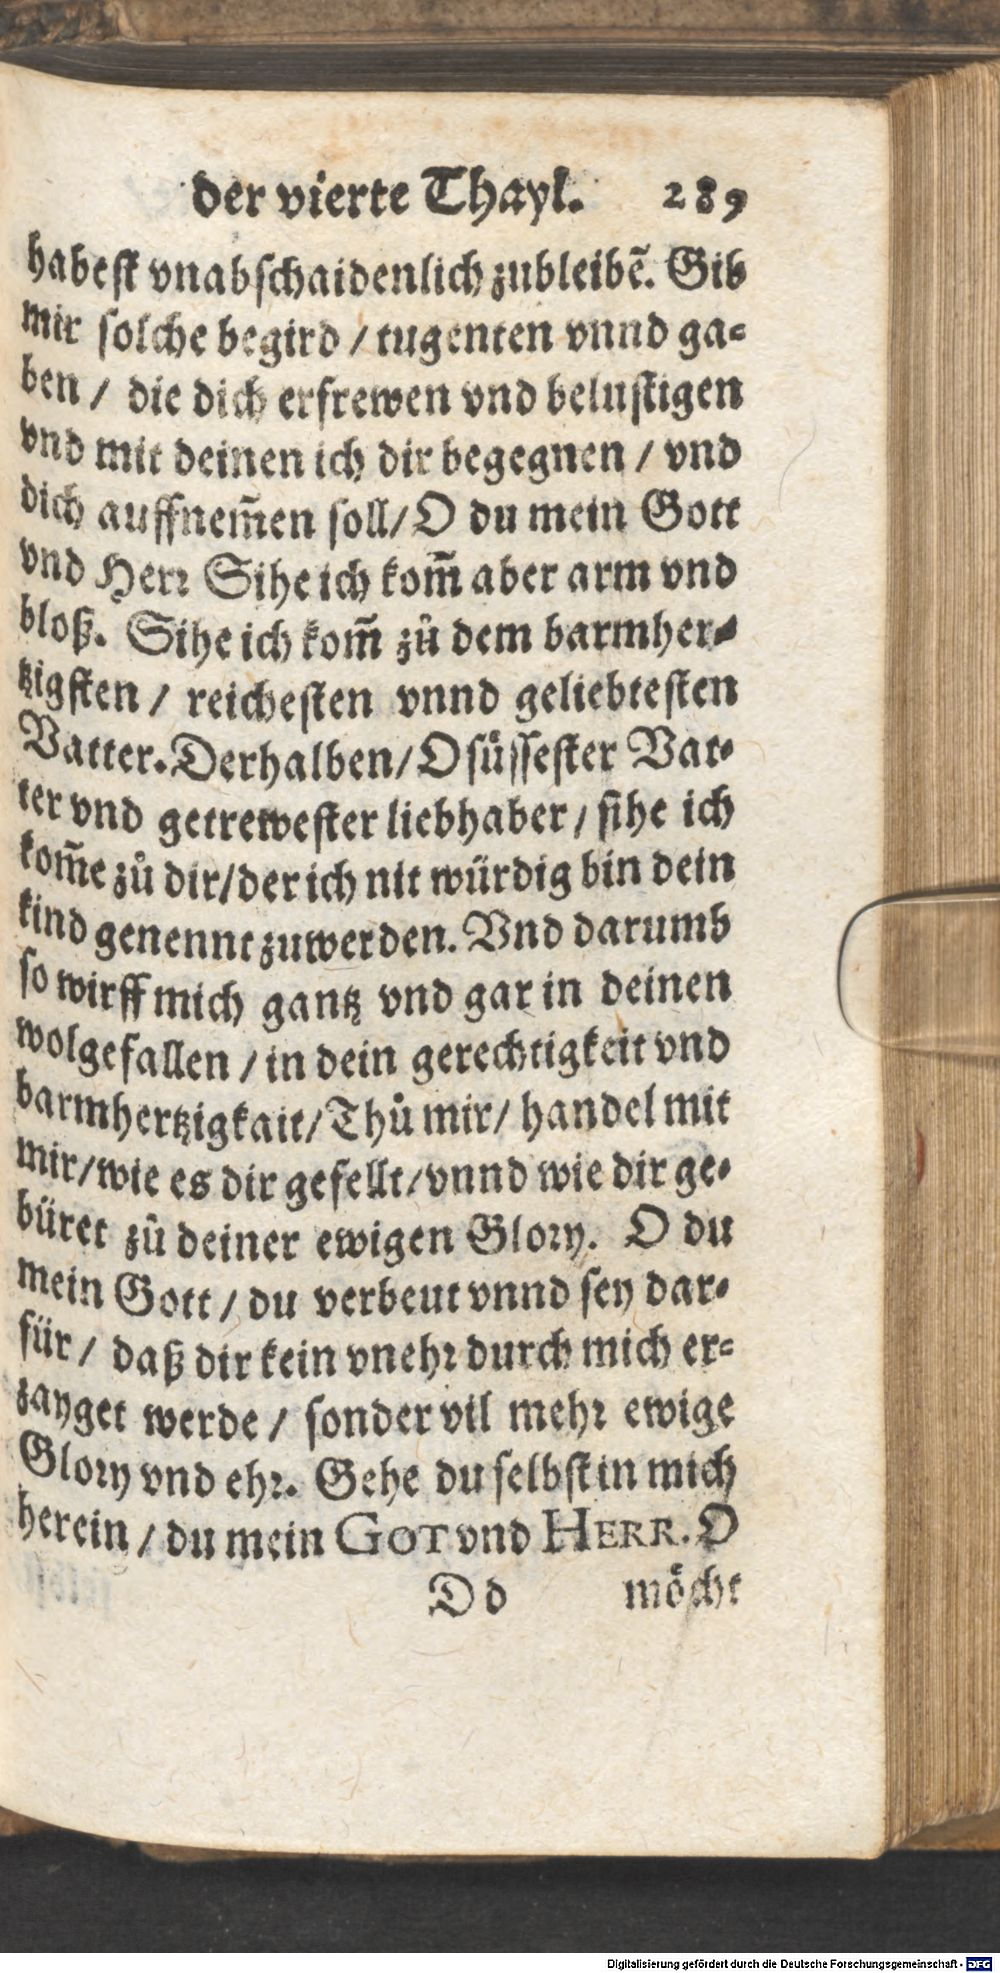 der vierte Thayl. 289
habest vnabschaidenlich zubleibẽ. Gib
mir solche begird / tugenten vnnd ga-
ben / die dich erfrewen vnd belustigen
vnd mit deinen ich dir begegnen / vnd
dich auffnem̃en soll / O du mein Gott
vnd Herr Sihe ich kom̃ aber arm vnd
bloß. Sihe ich kom̃ zů dem barmher-
tzigsten / reichesten vnnd geliebtesten
Vatter. Derhalben / O süssester Vat-
ter vnd getrewester liebhaber / sihe ich
kom̃e zů dir / der ich nit würdig bin dein
kind genennt zuwerden. Vnd darumb
so wirff mich gantz vnd gar in deinen
wolgefallen / in dein gerechtigkeit vnd
barmhertzigkait / Thů mir / handel mit
mir / wie es dir gefellt / vnnd wie dir ge-
büret zů deiner ewigen Glory. O du
mein Gott / du verbeut vnnd sey dar-
für / daß dir kein vnehr durch mich er-
zayget werde / sonder vil mehr ewige
Glory vnd ehr. Gehe du selbst in mich
herein / du mein GOT vnd HERR. O
D d möcht
Digitalisierung gefördert durch die Deutsche Forschungsgemeinschaft - DFG